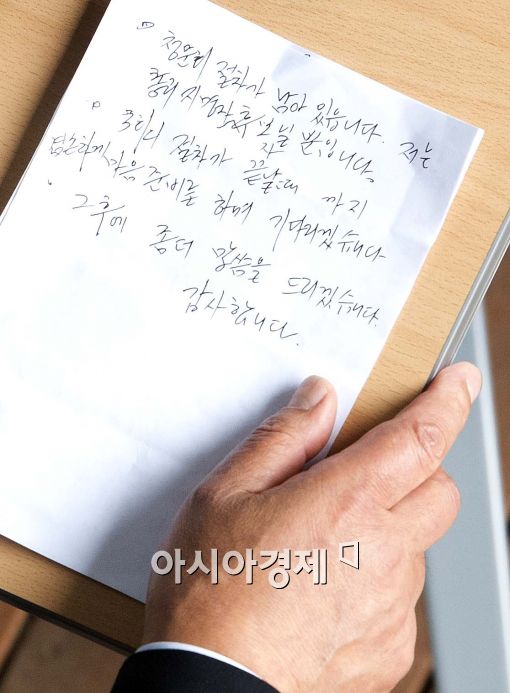 청문회 절차가 남아 있습니다. 저는
총리 지명자 후보일 뿐입니다.
국회의 절차가 끝날때 까지
겸손하게 마음 준비를 하며 기다리겠습니다
그 후에 좀더 말씀을 드리겠습니다.
감사합니다.
아시아경제